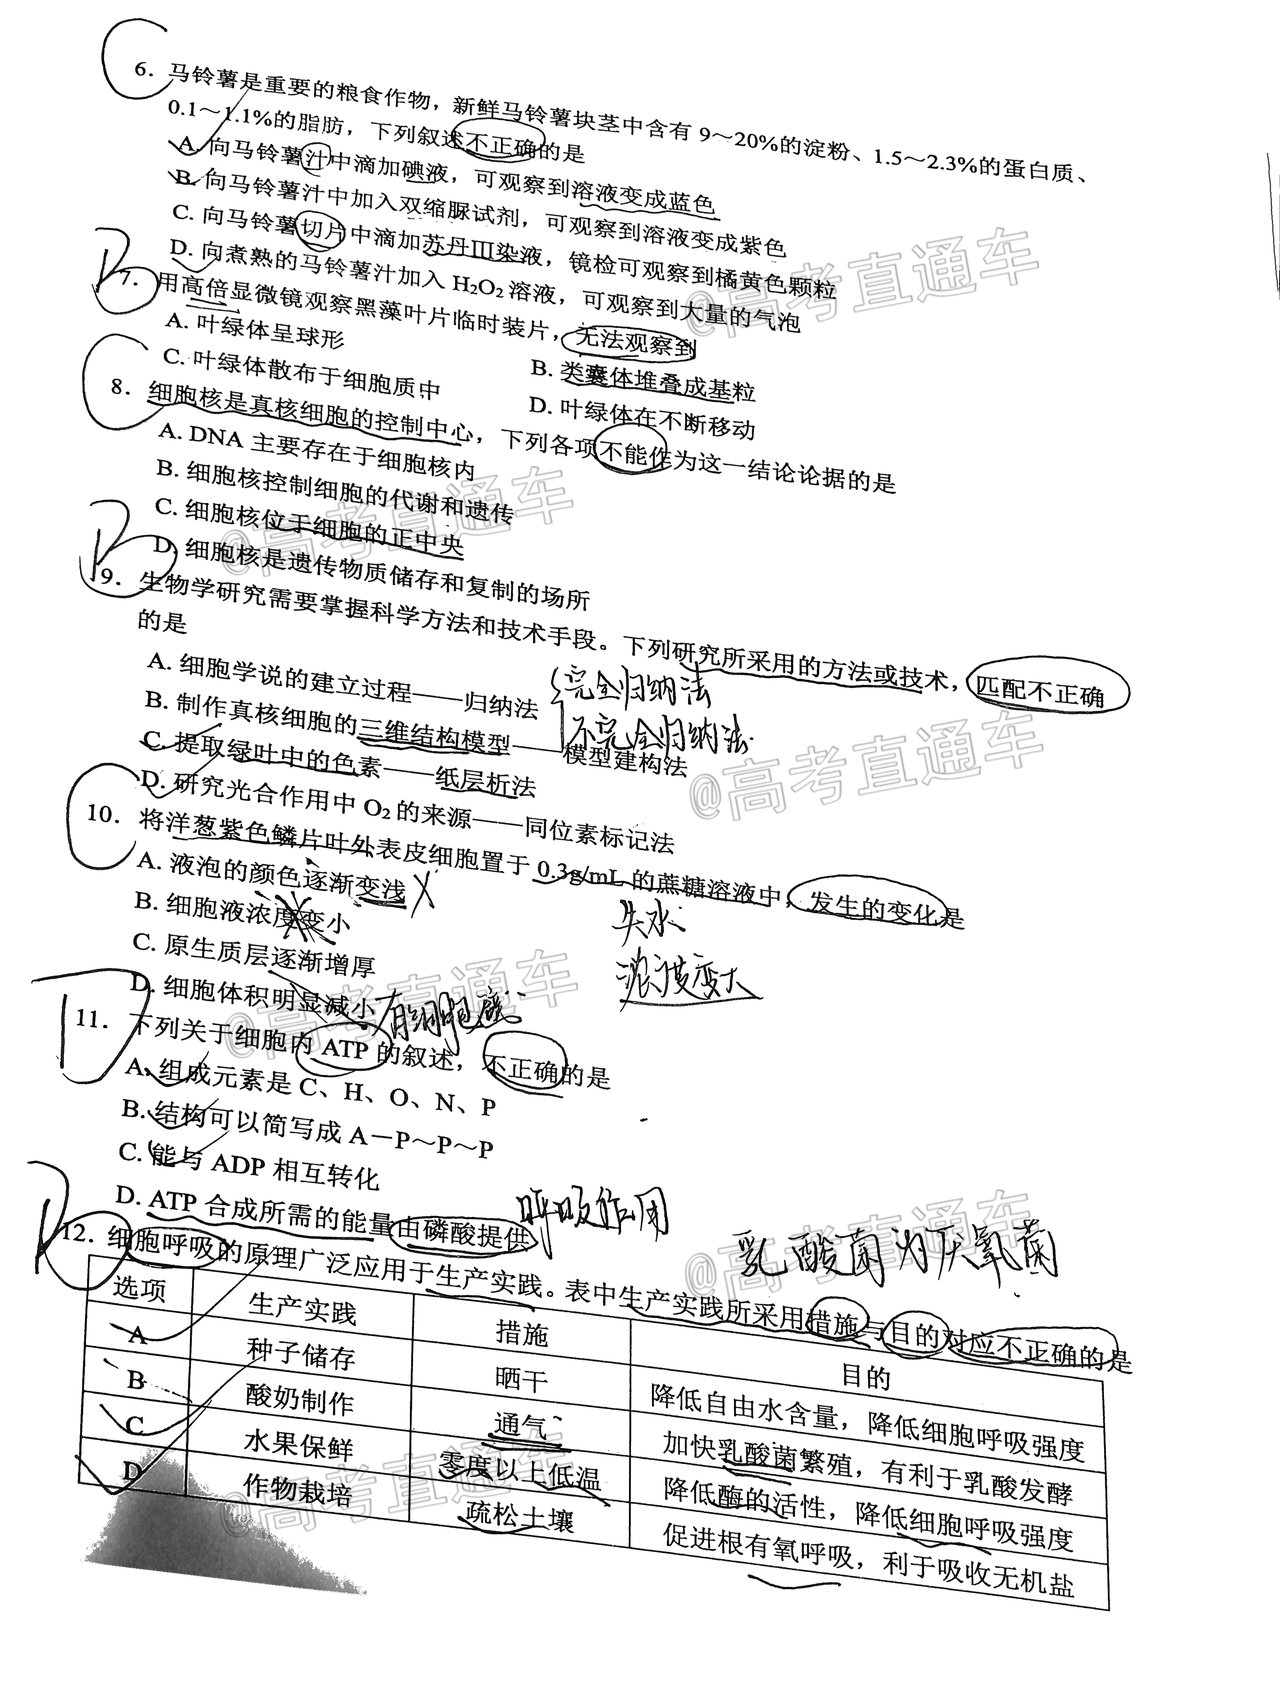 C
6. 马铃薯是重要的粮食作物，新鲜马铃薯块茎中含有 9～20%的淀粉、1.5～2.3%的蛋白质、
0.1～1.1%的脂肪，下列叙述不正确的是
A. 向马铃薯汁中滴加碘液，可观察到溶液变成蓝色
B. 向马铃薯汁中加入双缩脲试剂，可观察到溶液变成紫色
C. 向马铃薯切片中滴加苏丹III染液，镜检可观察到橘黄色颗粒
D. 向煮熟的马铃薯汁加入 H₂O₂ 溶液，可观察到大量的气泡
B
7. 用高倍显微镜观察黑藻叶片临时装片，无法观察到
A. 叶绿体呈球形
B. 类囊体堆叠成基粒
C. 叶绿体散布于细胞质中
D. 叶绿体在不断移动
C
8. 细胞核是真核细胞的控制中心，下列各项不能作为这一结论论据的是
A. DNA 主要存在于细胞核内
B. 细胞核控制细胞的代谢和遗传
C. 细胞核位于细胞的正中央
D. 细胞核是遗传物质储存和复制的场所
B
9. 生物学研究需要掌握科学方法和技术手段。下列研究所采用的方法或技术，匹配不正确
的是
A. 细胞学说的建立过程——归纳法
完全归纳法
不完全归纳法
B. 制作真核细胞的三维结构模型——模型建构法
C. 提取绿叶中的色素——纸层析法
D. 研究光合作用中 O₂ 的来源——同位素标记法
C
10. 将洋葱紫色鳞片叶外表皮细胞置于 0.3g/mL 的蔗糖溶液中，发生的变化是
A. 液泡的颜色逐渐变浅 X
失水
B. 细胞液浓度变小
浓度变大
C. 原生质层逐渐增厚
D. 细胞体积明显减小 有细胞壁
D
11. 下列关于细胞内 ATP 的叙述，不正确的是
A. 组成元素是 C、H、O、N、P
B. 结构可以简写成 A－P～P～P
C. 能与 ADP 相互转化
D. ATP 合成所需的能量由磷酸提供
呼吸作用
乳酸菌为厌氧菌
B
12. 细胞呼吸的原理广泛应用于生产实践。表中生产实践所采用措施与目的对应不正确的是
选项 生产实践 措施 目的
A 种子储存 晒干 降低自由水含量，降低细胞呼吸强度
B 酸奶制作 通气 加快乳酸菌繁殖，有利于乳酸发酵
C 水果保鲜 零度以上低温 降低酶的活性，降低细胞呼吸强度
D 作物栽培 疏松土壤 促进根有氧呼吸，利于吸收无机盐
@高考直通车
@高考直通车
@高考直通车
@高考直通车
@高考直通车
@高考直通车